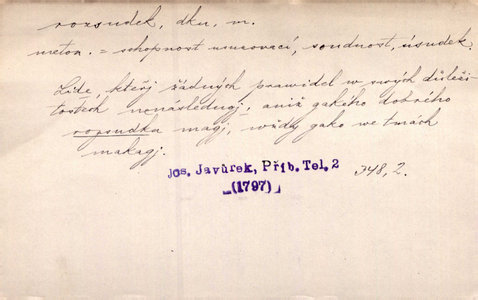 rozsudek, dku, m.
meton. = schopnost usuzovací, soudnost, úsudek.
Lidé, kteřj žádných prawidel w swých důleži-
tostech nenásledugj, aniž gakého dobrého
rozsudku magj, wždy gako we tmách
makagj.
Jos. Javůrek, Příb. Tel. 2
(1797)
348, 2.